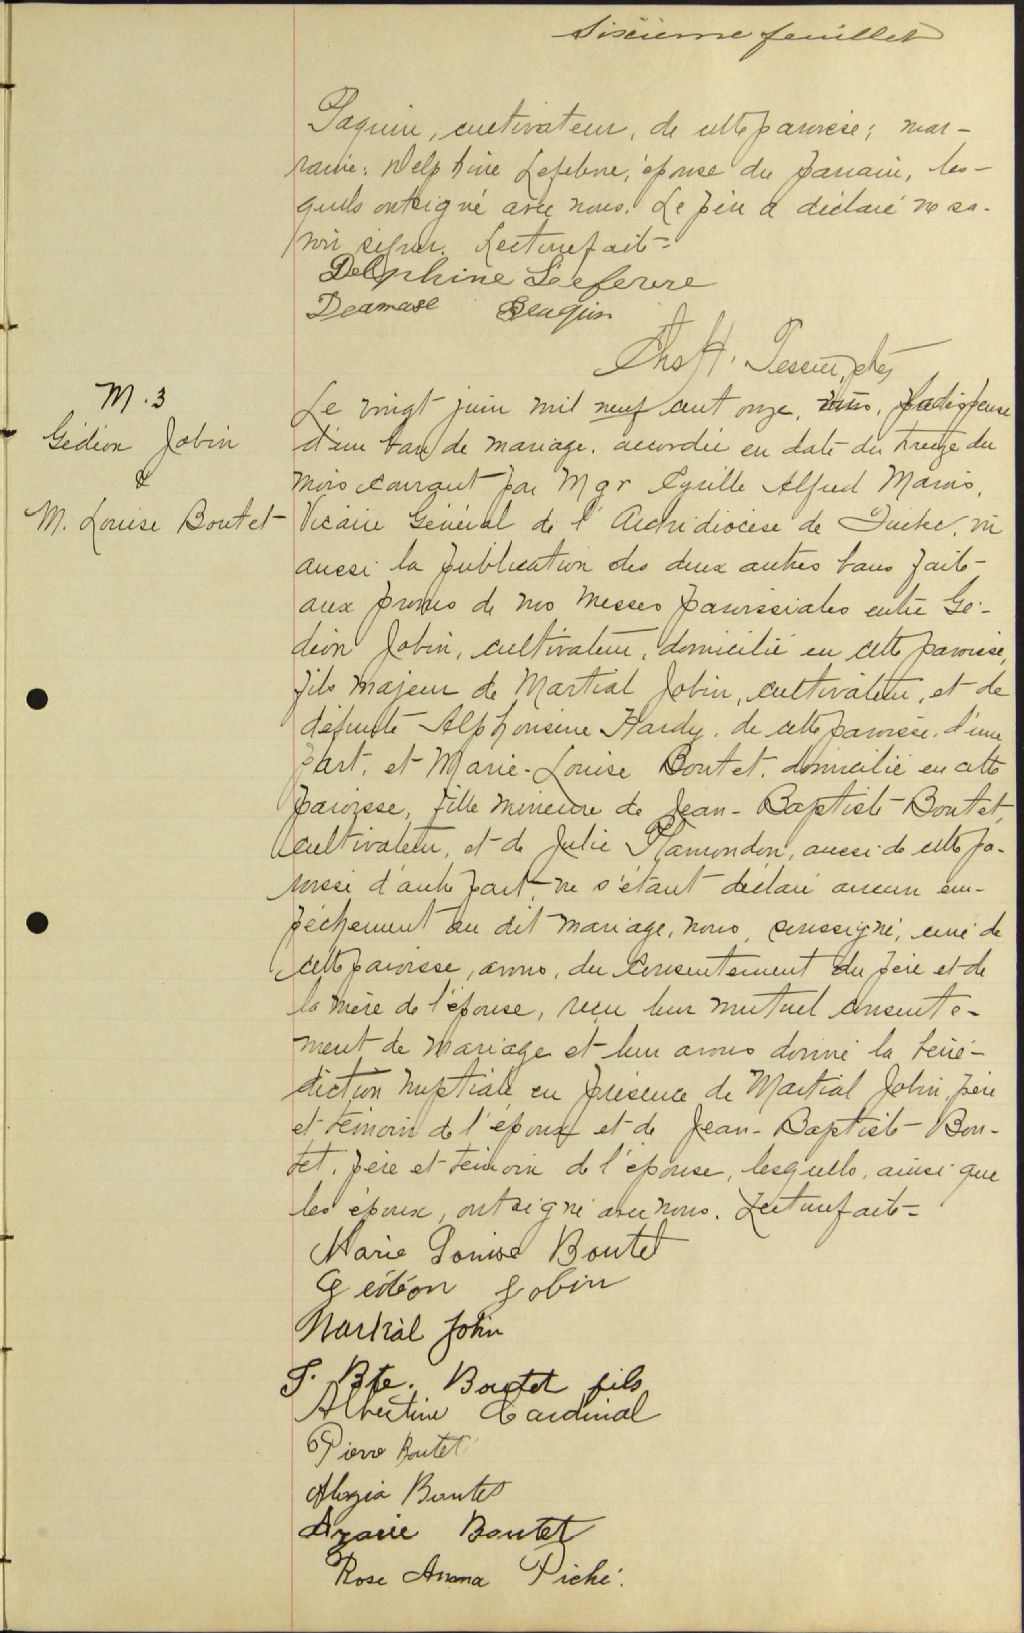 Sixième feuillet
Paquin, cultivateur, de cette paroisse; mar-
raine: Delphine Lefebvre, épouse du parrain, les-
quels ont signé avec nous. Le père a déclaré ne sa-
voir signer. Lecture faite=
Delphine Leefevre
Deamase Peaquin
Chs H.
M. 3
Gédéon Jobin
&
M. Louise Boutet
Le vingt juin mil neuf cent onze, vu la dispense
d'un ban de mariage, accordée en date du treize du
mois courant par Mgr Cyrille Alfred Marois,
Vicaire Général de l'Archidiocèse de Québec, vu
aussi la publication des deux autres bans faite
aux prônes de nos messes paroissiales entre Gé-
déon Jobin, cultivateur, domicilié en cette paroisse,
fils majeur de Martial Jobin, cultivateur, et de
défunte Alphonsine Hardy, de cette paroisse, d'une
part, et Marie-Louise Boutet, domicilié en cette
paroisse, fille mineure de Jean-Baptiste Boutet,
cultivateur, et de Julie Plamondon, aussi de cette pa-
roisse d'autre part, ne s'étant déclaré aucun em-
pêchement au dit mariage, nous, soussigné, curé de
cette paroisse, avons, du consentement du père et de
la mère de l'épouse, reçu leur mutuel consente-
ment de mariage et leur avons donné la béné-
diction nuptiale en présence de Martial Jobin, père
et témoin de l'époux et de Jean-Baptiste Bou-
tet, père et témoin de l'épouse, lesquells, ainsi que
les époux, ont signé avec nous. Lecture faite=
Marie Louise Boutet
Gédéon Jobin
Martial Jobin
J. Bte. Boutet fils
Albertine Cardinal
Pierre Boutet
Alexia Boutet
Azarie Boutet
Rose Anna Piché.